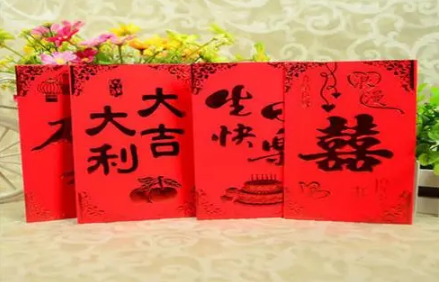 大吉
大利
生日
快乐
囍